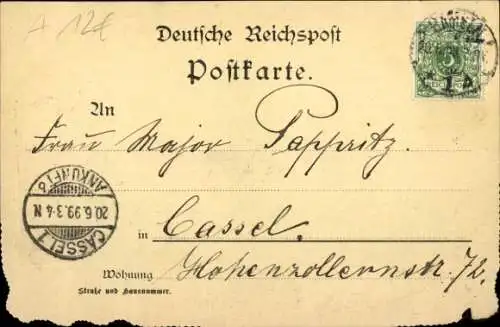 A 12€
Deutsche Reichspost
Postkarte.
An
Frau Major Pappritz.
in Cassel.
Wohnung Hohenzollernstr. 72.
Straße und Hausnummer.
CASSEL 1
20.6.99. 3-4 N
ANKUNFT
5